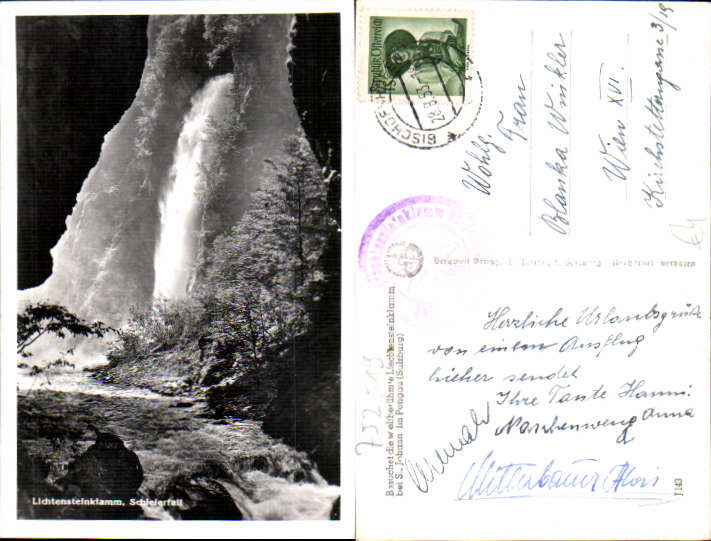 Lichtensteinklamm, Schleierfall
Republik Österreich
BISCHOFSHOFEN
28.8.53
Wohlg.
Frau
Blanka Winkler
Wien XVI.
Kirchstetterngasse 3/19
Besuchet die weltberühmte Liechtensteinklamm
bei St. Johann im Pongau (Salzburg)
Herzliche Urlaubsgrüße
von einem Ausflug
hieher sendet
Ihre Tante Hanni
Anna
Mitterbauer Alois
J 143